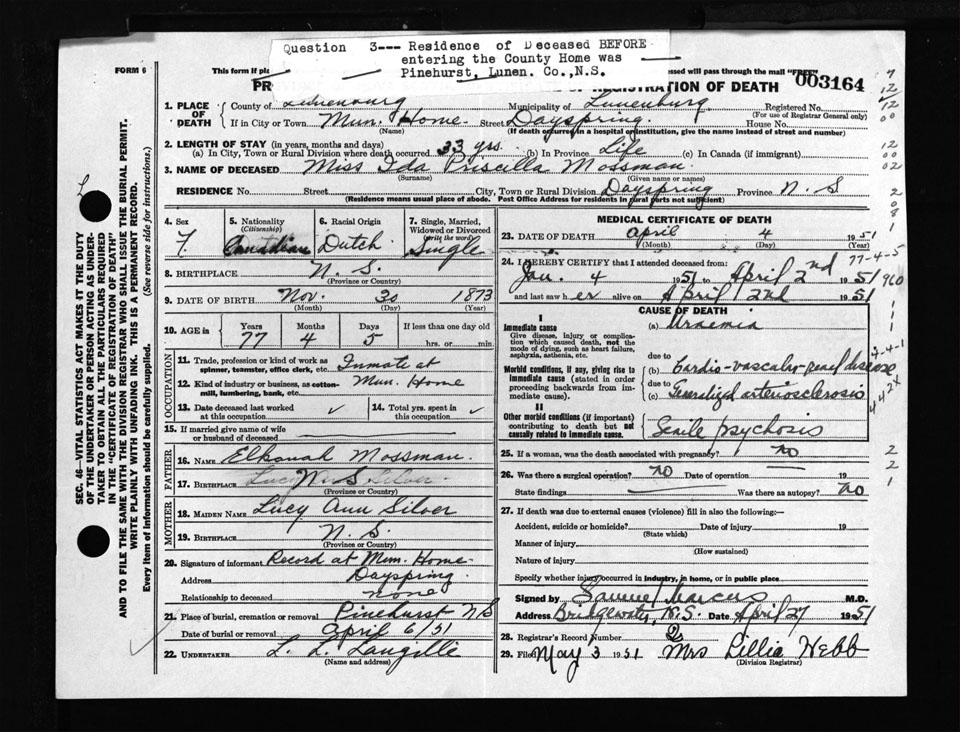 Question 3--- Residence of Deceased BEFORE
entering the County Home was
Pinehurst, Lunen. Co.,N.S.
FORM 6
This form if
passed will pass through the mail "FREE"
003164
REGISTRATION OF DEATH
1. PLACE OF DEATH
County of Lunenburg Municipality of Lunenburg Registered No.
(For use of Registrar General only)
If in City or Town Mun. Home Street Dayspring House No.
(Name) (If death occurred in a hospital or institution, give the name instead of street and number)
2. LENGTH OF STAY (in years, months and days)
(a) In City, Town or Rural Division where death occurred 33 yrs. (b) In Province Life (c) In Canada (if immigrant)
3. NAME OF DECEASED Miss Ida Priscilla Mossman
(Surname) (Given name or names)
RESIDENCE No. Street City, Town or Rural Division Dayspring Province N. S
(Residence means usual place of abode. Post Office Address for residents in rural parts not sufficient)
4. Sex F.
5. Nationality (Citizenship) Canadian
6. Racial Origin Dutch
7. Single, Married, Widowed or Divorced (write the word) Single
8. BIRTHPLACE N. S.
(Province or Country)
9. DATE OF BIRTH Nov. 30 1873
(Month) (Day) (Year)
10. AGE in Years 77 Months 4 Days 5 If less than one day old hrs. or min.
OCCUPATION
11. Trade, profession or kind of work as spinner, teamster, office clerk, etc. Inmate at
12. Kind of industry or business, as cotton-mill, lumbering, bank, etc. Mun. Home
13. Date deceased last worked at this occupation ✓
14. Total yrs. spent in this occupation ✓
15. If married give name of wife or husband of deceased
FATHER
16. NAME Elkanah Mossman
17. BIRTHPLACE N S
(Province or Country)
MOTHER
18. MAIDEN NAME Lucy Ann Silver
19. BIRTHPLACE N. S.
(Province or Country)
20. Signature of informant Record at Mun. Home
Address Dayspring
Relationship to deceased none
21. Place of burial, cremation or removal Pinehurst N S
Date of burial or removal April 6/51
22. UNDERTAKER L. L. Langille
(Name and address)
MEDICAL CERTIFICATE OF DEATH
23. DATE OF DEATH April 4 1951
(Month) (Day) (Year)
77-4-5
24. I HEREBY CERTIFY that I attended deceased from:
Jan. 4 1951 to April 2nd 1951
and last saw her alive on April 2nd 1951
CAUSE OF DEATH
I
Immediate cause
Give disease, injury or complication which caused death, not the mode of dying, such as heart failure, asphyxia, asthenia, etc.
(a) Uraemia
due to
Morbid conditions, if any, giving rise to immediate cause (stated in order proceeding backwards from immediate cause).
(b) Cardio-vascular-renal disease
due to
(c) Generalized arteriosclerosis
II
Other morbid conditions (if important) contributing to death but not causally related to immediate cause.
Senile psychosis
25. If a woman, was the death associated with pregnancy? no
26. Was there a surgical operation? no Date of operation 19
State findings Was there an autopsy? no
27. If death was due to external causes (violence) fill in also the following:—
Accident, suicide or homicide? Date of injury 19
(State which)
Manner of injury
(How sustained)
Nature of injury
Specify whether injury occurred in industry, in home, or in public place
Signed by Samuel Marcus M.D.
Address Bridgewater, N.S. Date April 27 1951
28. Registrar's Record Number 2
29. Filed May 3 1951 Mrs Lillia Webb
(Division Registrar)
SEC. 46—VITAL STATISTICS ACT MAKES IT THE DUTY
OF THE UNDERTAKER OR PERSON ACTING AS UNDER-
TAKER TO OBTAIN ALL THE PARTICULARS REQUIRED
IN THE "CERTIFICATE OF REGISTRATION OF DEATH"
AND TO FILE THE SAME WITH THE DIVISION REGISTRAR WHO SHALL ISSUE THE BURIAL PERMIT.
WRITE PLAINLY WITH UNFADING INK. THIS IS A PERMANENT RECORD.
Every item of Information should be carefully supplied. (See reverse side for instructions.)